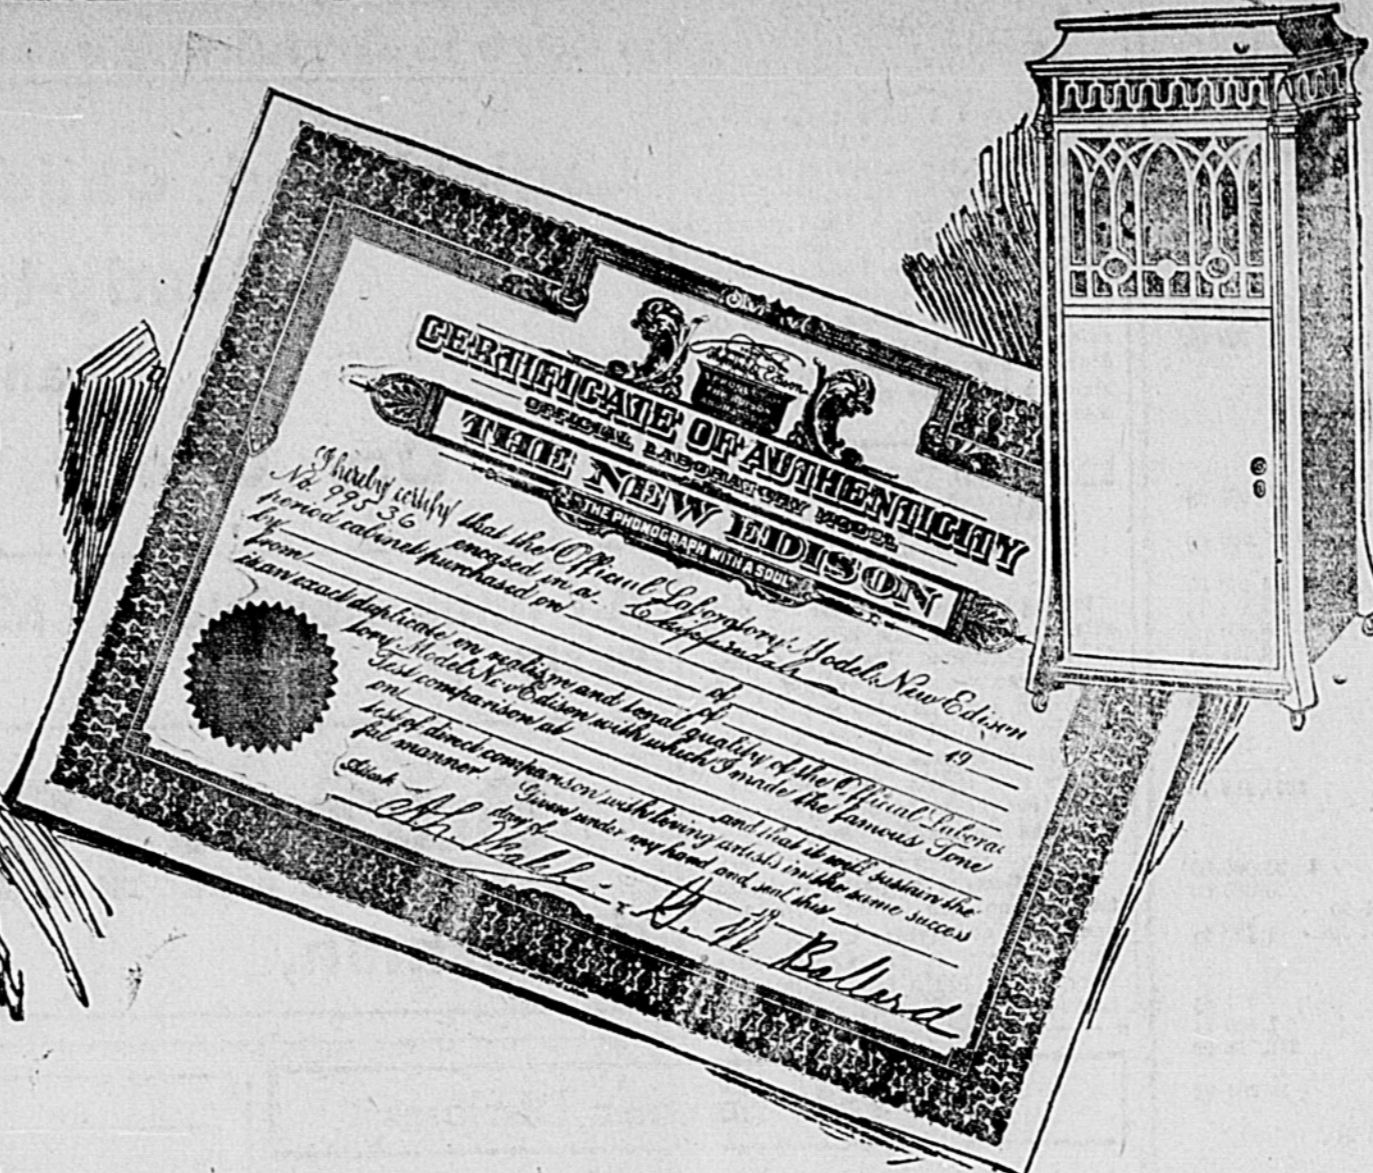 CERTIFICATE OF AUTHENTICITY
OFFICIAL LABORATORY MODEL
THE NEW EDISON
"THE PHONOGRAPH WITH A SOUL"
I hereby certify that the Official Laboratory Model New Edison
No. 99536 encased in a Chippendale
period cabinet purchased on 19
by of
from of
is an exact duplicate in realism and tonal quality of the Official Labora-
tory Model New Edison with which I made the famous Tone
Test comparison at
on and that it will sustain the
test of direct comparison with living artists in the same success
ful manner. Given under my hand and seal this
day of 19
Attest
G. N. Ballard